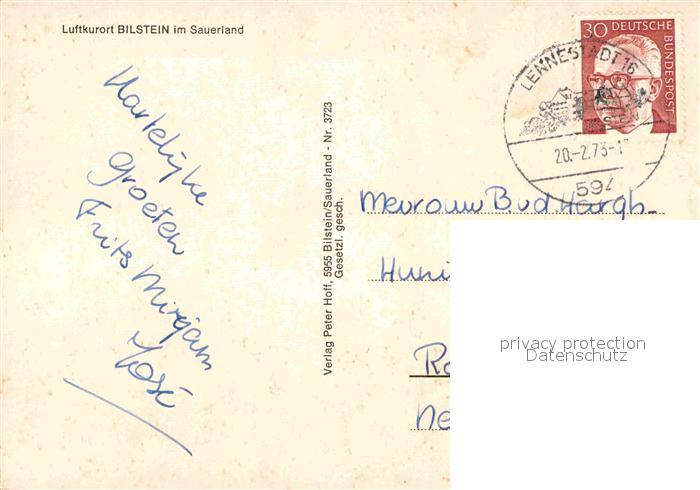 Luftkurort BILSTEIN im Sauerland
Hartelijke
groeten
Frits Mirjam
José
Verlag Peter Hoff, 5955 Bilstein/Sauerland - Nr. 3723
Gesetzl. gesch.
30 DEUTSCHE
BUNDESPOST
LENNESTADT 16
20.-2.73-1
594
Mevrouw
Huni
Ro
Ne
privacy protection
Datenschutz